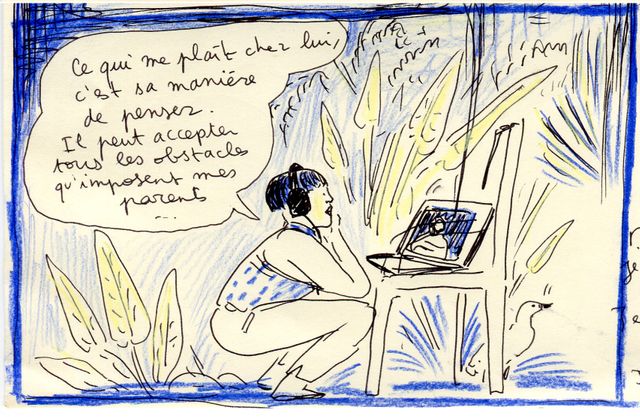 Ce qui me plaît chez lui,
c'est sa manière
de penser.
Il peut accepter
tous les obstacles
qu'imposent mes
parents
...